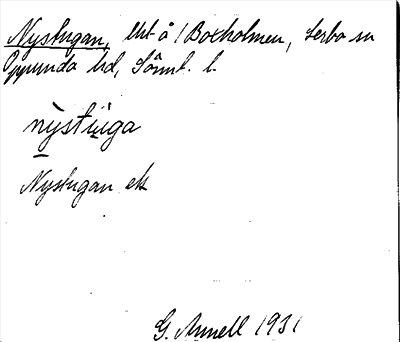 Nystugan, Utt å /Boxholmen, Lerbo sn
Oppunda hd, Sörml. l.
nỳstu̱ga
Nystugan ek
G. Annell 1931